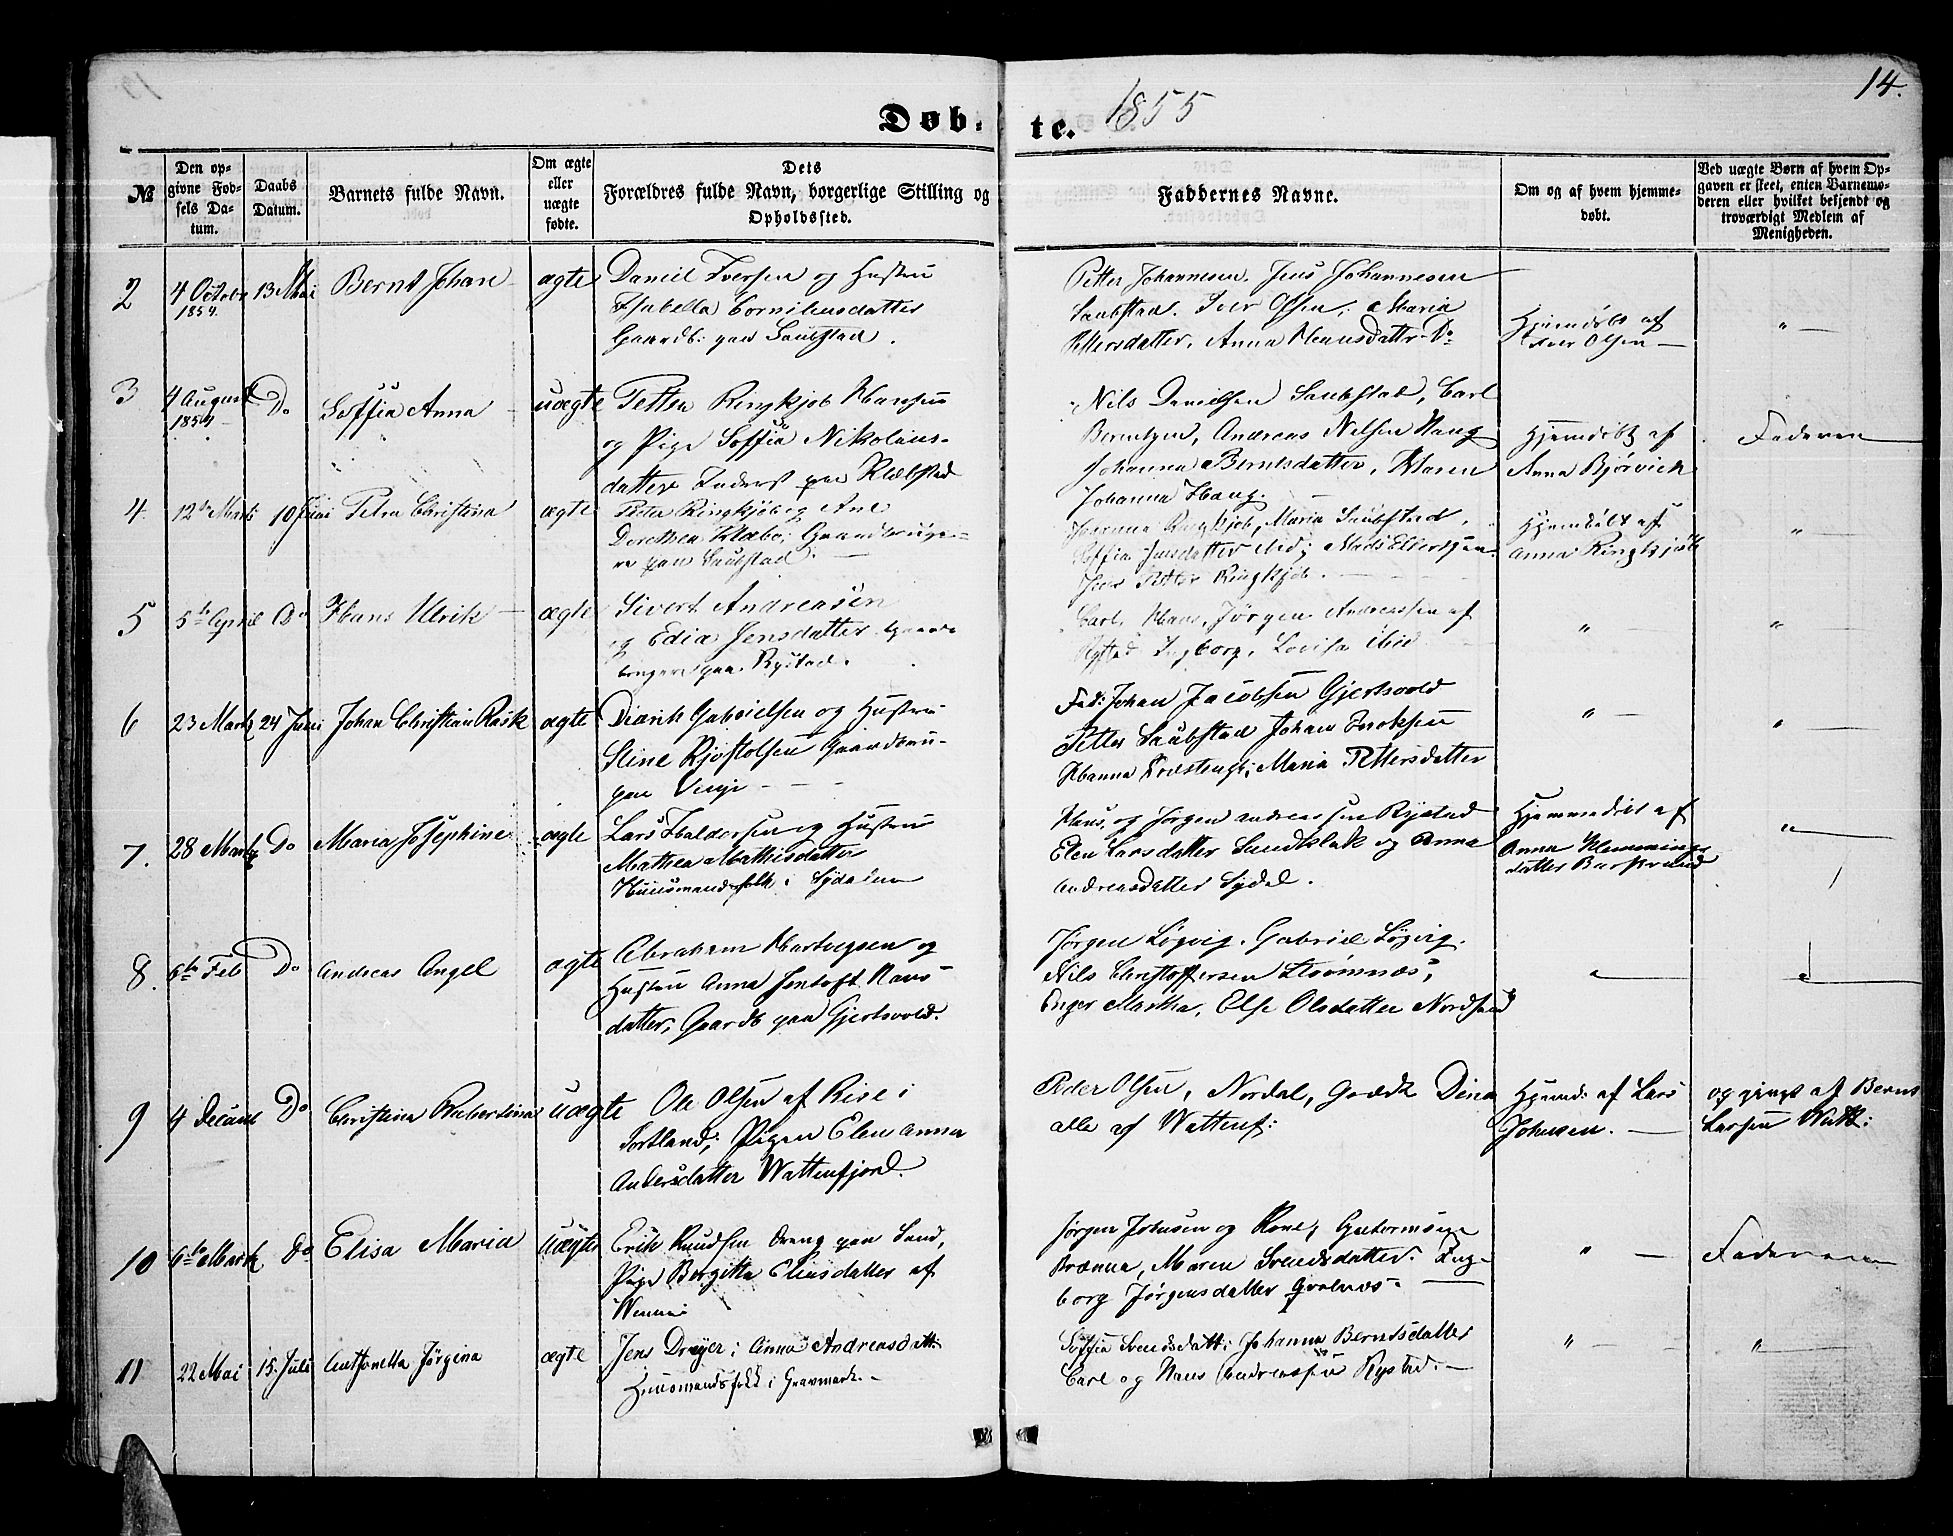 14.
Døb- te. 1855
№
Den opgivne Fødsels Datum.
Daabs Datum.
Barnets fulde Navn.
Om ægte eller uægte fødte.
Dets Forældres fulde Navn, borgerlige Stilling og Opholdssted.
Faddernes Navne.
Om og af hvem hjemmedøbt.
Ved uægte Børn af hvem Opgaven er skeet, enten Barnemoderen eller hvilket bekjendt og troværdigt Medlem af Menigheden.
2 4 Octobr 1854. 13 Mai Bernt Johan ægte
Daniel Iversen og Hustru
Isabella Corniliusdatter
Gaardb: paa Saubstad.
Petter Johannesen. Jens Johannesen
Saubstad. Iver Olsen, Maria
Pettersdatter, Anna Hansdatter Do
Hjemdøbt af
Iver Olsen —
" —
3 4 August 1854 Do Soffia Anna uægte
Petter Ringkjøb Hansen
og Pige Soffia Nikolaus-
datter Inderst paa Klæbstad
Nils Danielsen Saubstad, Carl
Berntsen, Andreas Nilsen Haug
Johanna Berntsdatter, Maren
Johanna Haug.
Hjemdøbt af
Anna Bjørvick
Faderen
4. 12te Marts 10 Juni Petra Christina ægte
Peter Ringkjøb og Ane
Dorethea Klæbo; Gaardbruge-
re paa Saubstad.
Johanna Ringkjøb, Maria Saubstad,
Soffia Jensdatter ibid; Mads Ellertsen
Jens Petter Ringkjøb.
Hjemdøbt af
Anna Ringkjøb
" —
5 5te April Do Hans Ulrik — ægte
Sivert Andreasen
og Edia Jensdatter Gaard-
brugere paa Rystad.
Carl, Hans, Jørgen Andreassen af
Rystad Ingborg, Lovisa ibid
" —
" —
6 23 Marts 24 Juni Johan Christian Rask ægte
Didrik Gabrielsen og Hustru
Stine Kjøstolsen Gaardbru-
paa Venje
Fad: Johan Jacobsen Gjertsvold
Petter Saubstad Johan Enoksen
Hanna Præsteng; Maria Pettersdatter
" —
" —
7. 28 Marts Do Maria Josephine ægte
Lars Haldorsen og Hustru
Mathea Mathisdatter
Huusmandsfolk i Sydalen
Hans, og Jørgen Andreassen Rystad
Elen Larsdatter Sandslet og Anna
Andreasdatter Sydal.
Hjemmedøbt af
Anna Hemmings
datter Barstrand
" —
8. 6te Feb Do Andreas Angel ægte
Abraham Hartvigsen og
Hustru Anna Jentoft Hans-
datter, Gaardb paa Gjertsvold.
Jørgen Løgvig. Gabriel Løgvig.
Nils Christoffersen Strømnæs,
Inger Martha, Else Olsdatter Nordsand
" —
9 4 Decembr Do Christina Hubertina uægte
Ole Olsen af Rise i
Sortland; Pigen Elen Anna
Andersdatter Wattenfjord.
Peder Olsen, Nordal, Dina
alle af Wattenf:
Hjemd: af Lars
Johnsen. —
og givet af Bernt
Larsen Watt:
10 6te Marts Do Elisa Maria uægte
Erik Knudsen Dreng paa Sand,
Pige Bergitta Eliasdatter af
Jørgen Johnsen og Kone,
Brænna, Maren Svendsdatter. Ing-
borg Jørgensdatter Grolnæs.
" —
Faderen
11 22 Mai 15. Juli Antonetta Jørgina ægte
Jens Dreyer; Anna Andreasdatt:
Huusmandsfolk i Gravmark. —
Soffia Svendsdatt; Johanna Berntsdatter
Carl og Hans Andreassen Rystad. —
" —
" —